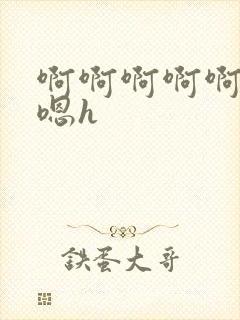 啊啊啊啊啊
嗯h
鉄蛋大哥